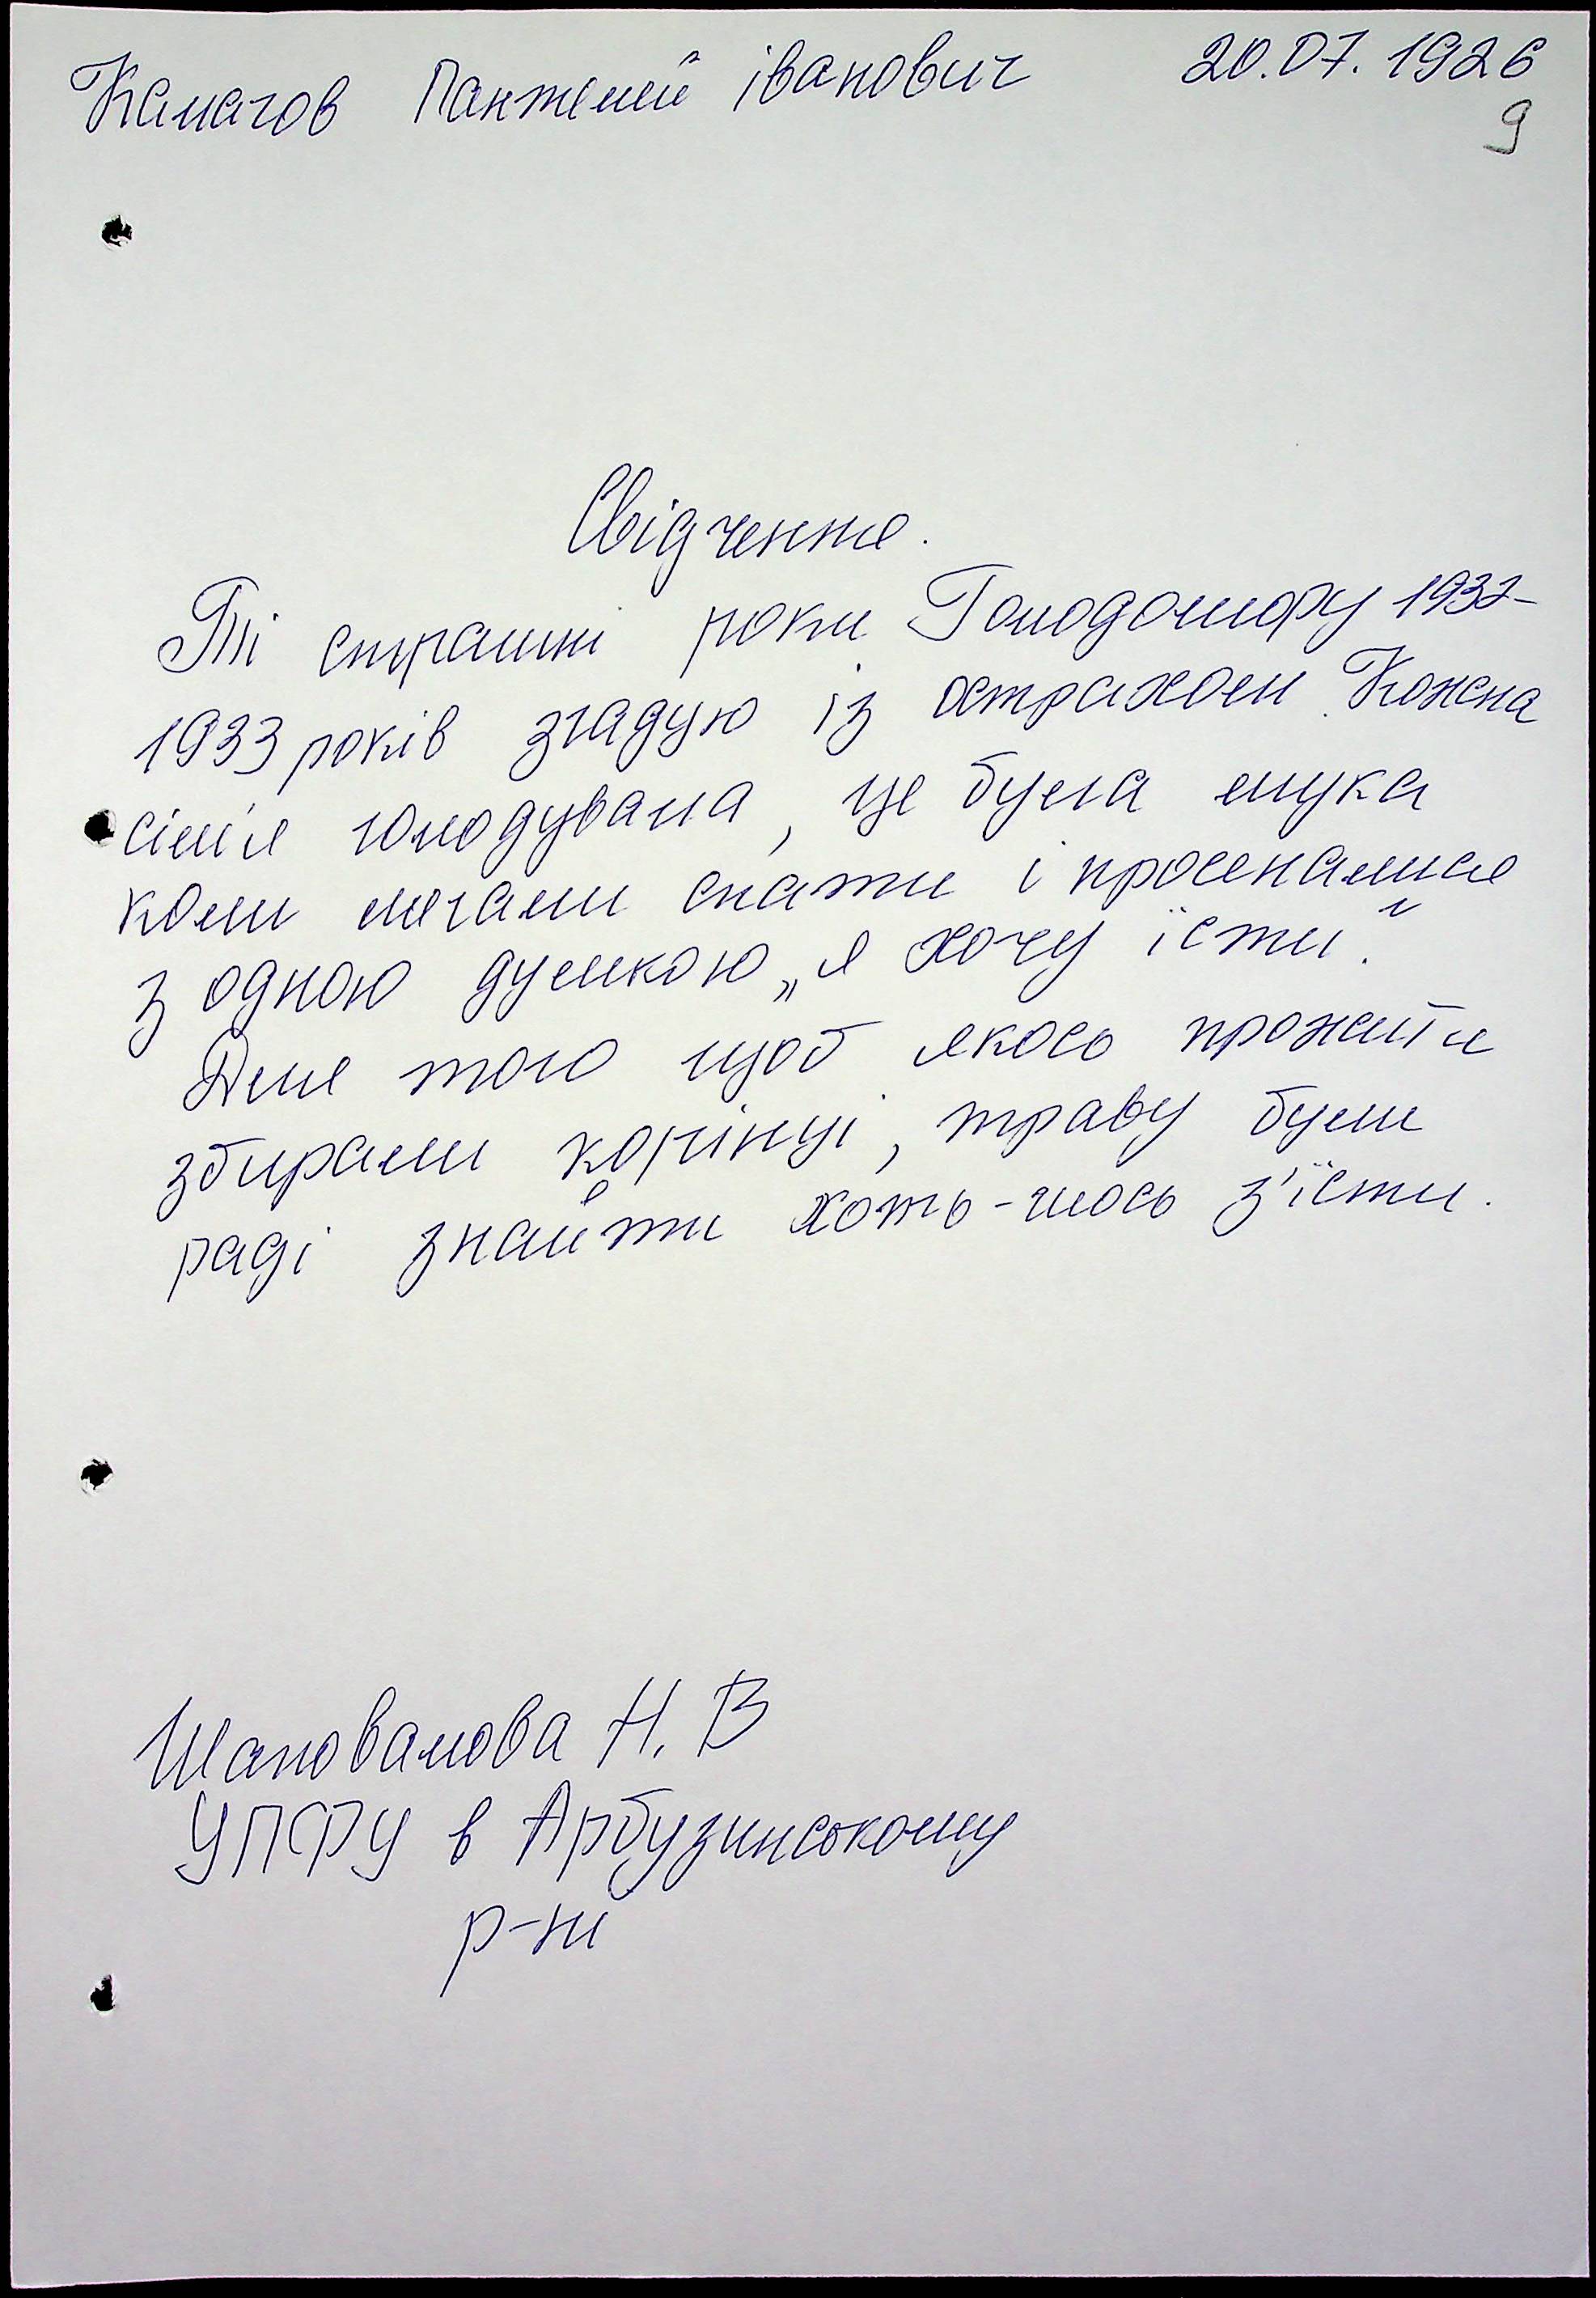 Калагов Пантелей Іванович 20.07.1926
9
Свідчення.
Ті страшні роки Голодомору 1932-
1933 років згадую із острахом. Кожна
сім'я голодувала, це була мука
коли лягали спати і просиналися
з одною думкою „я хочу їсти".
Для того щоб якось прожити
збирали корінці, траву були
раді знайти хоть-шось з'їсти.
Шаповалова Н. В
УПФУ в Арбузинському
р-ні